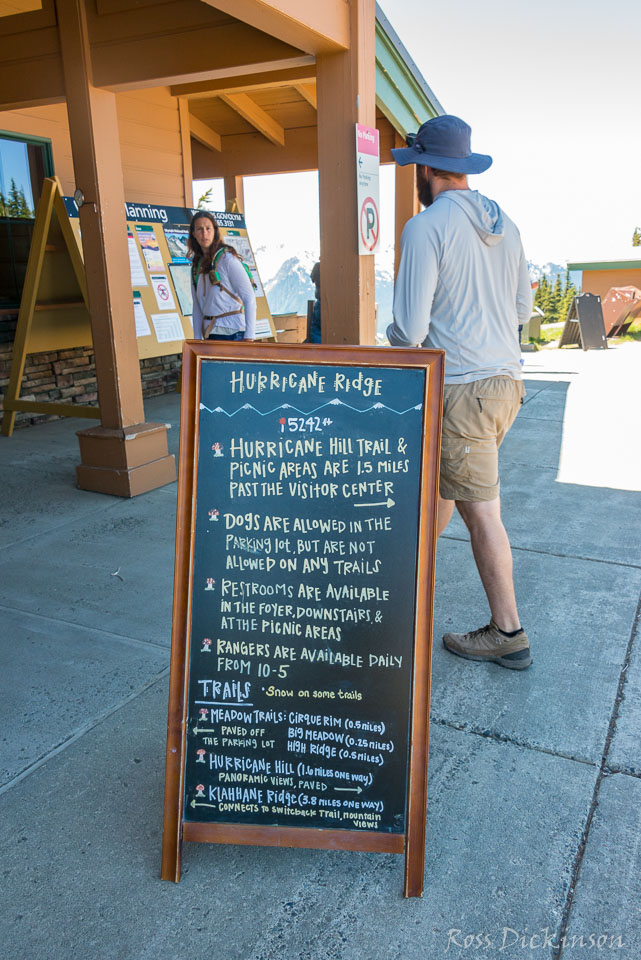 nning
S.GOV/OLYM
65.3131
No Parking
P
HURRICANE RIDGE
5242 ft
HURRICANE HILL TRAIL &
PICNIC AREAS ARE 1.5 MILES
PAST THE VISITOR CENTER
DOGS ARE ALLOWED IN THE
PARKING LOT, BUT ARE NOT
ALLOWED ON ANY TRAILS
RESTROOMS ARE AVAILABLE
IN THE FOYER, DOWNSTAIRS, &
AT THE PICNIC AREAS
RANGERS ARE AVAILABLE DAILY
FROM 10-5
TRAILS *SNOW ON SOME TRAILS
MEADOW TRAILS: CIRQUE RIM (0.5 MILES)
PAVED OFF BIG MEADOW (0.25 MILES)
THE PARKING LOT HIGH RIDGE (0.5 MILES)
HURRICANE HILL (1.6 MILES ONE WAY)
PANORAMIC VIEWS, PAVED
KLAHHANE RIDGE (3.8 MILES ONE WAY)
CONNECTS TO SWITCHBACK TRAIL, MOUNTAIN
VIEWS
Ross Dickinson